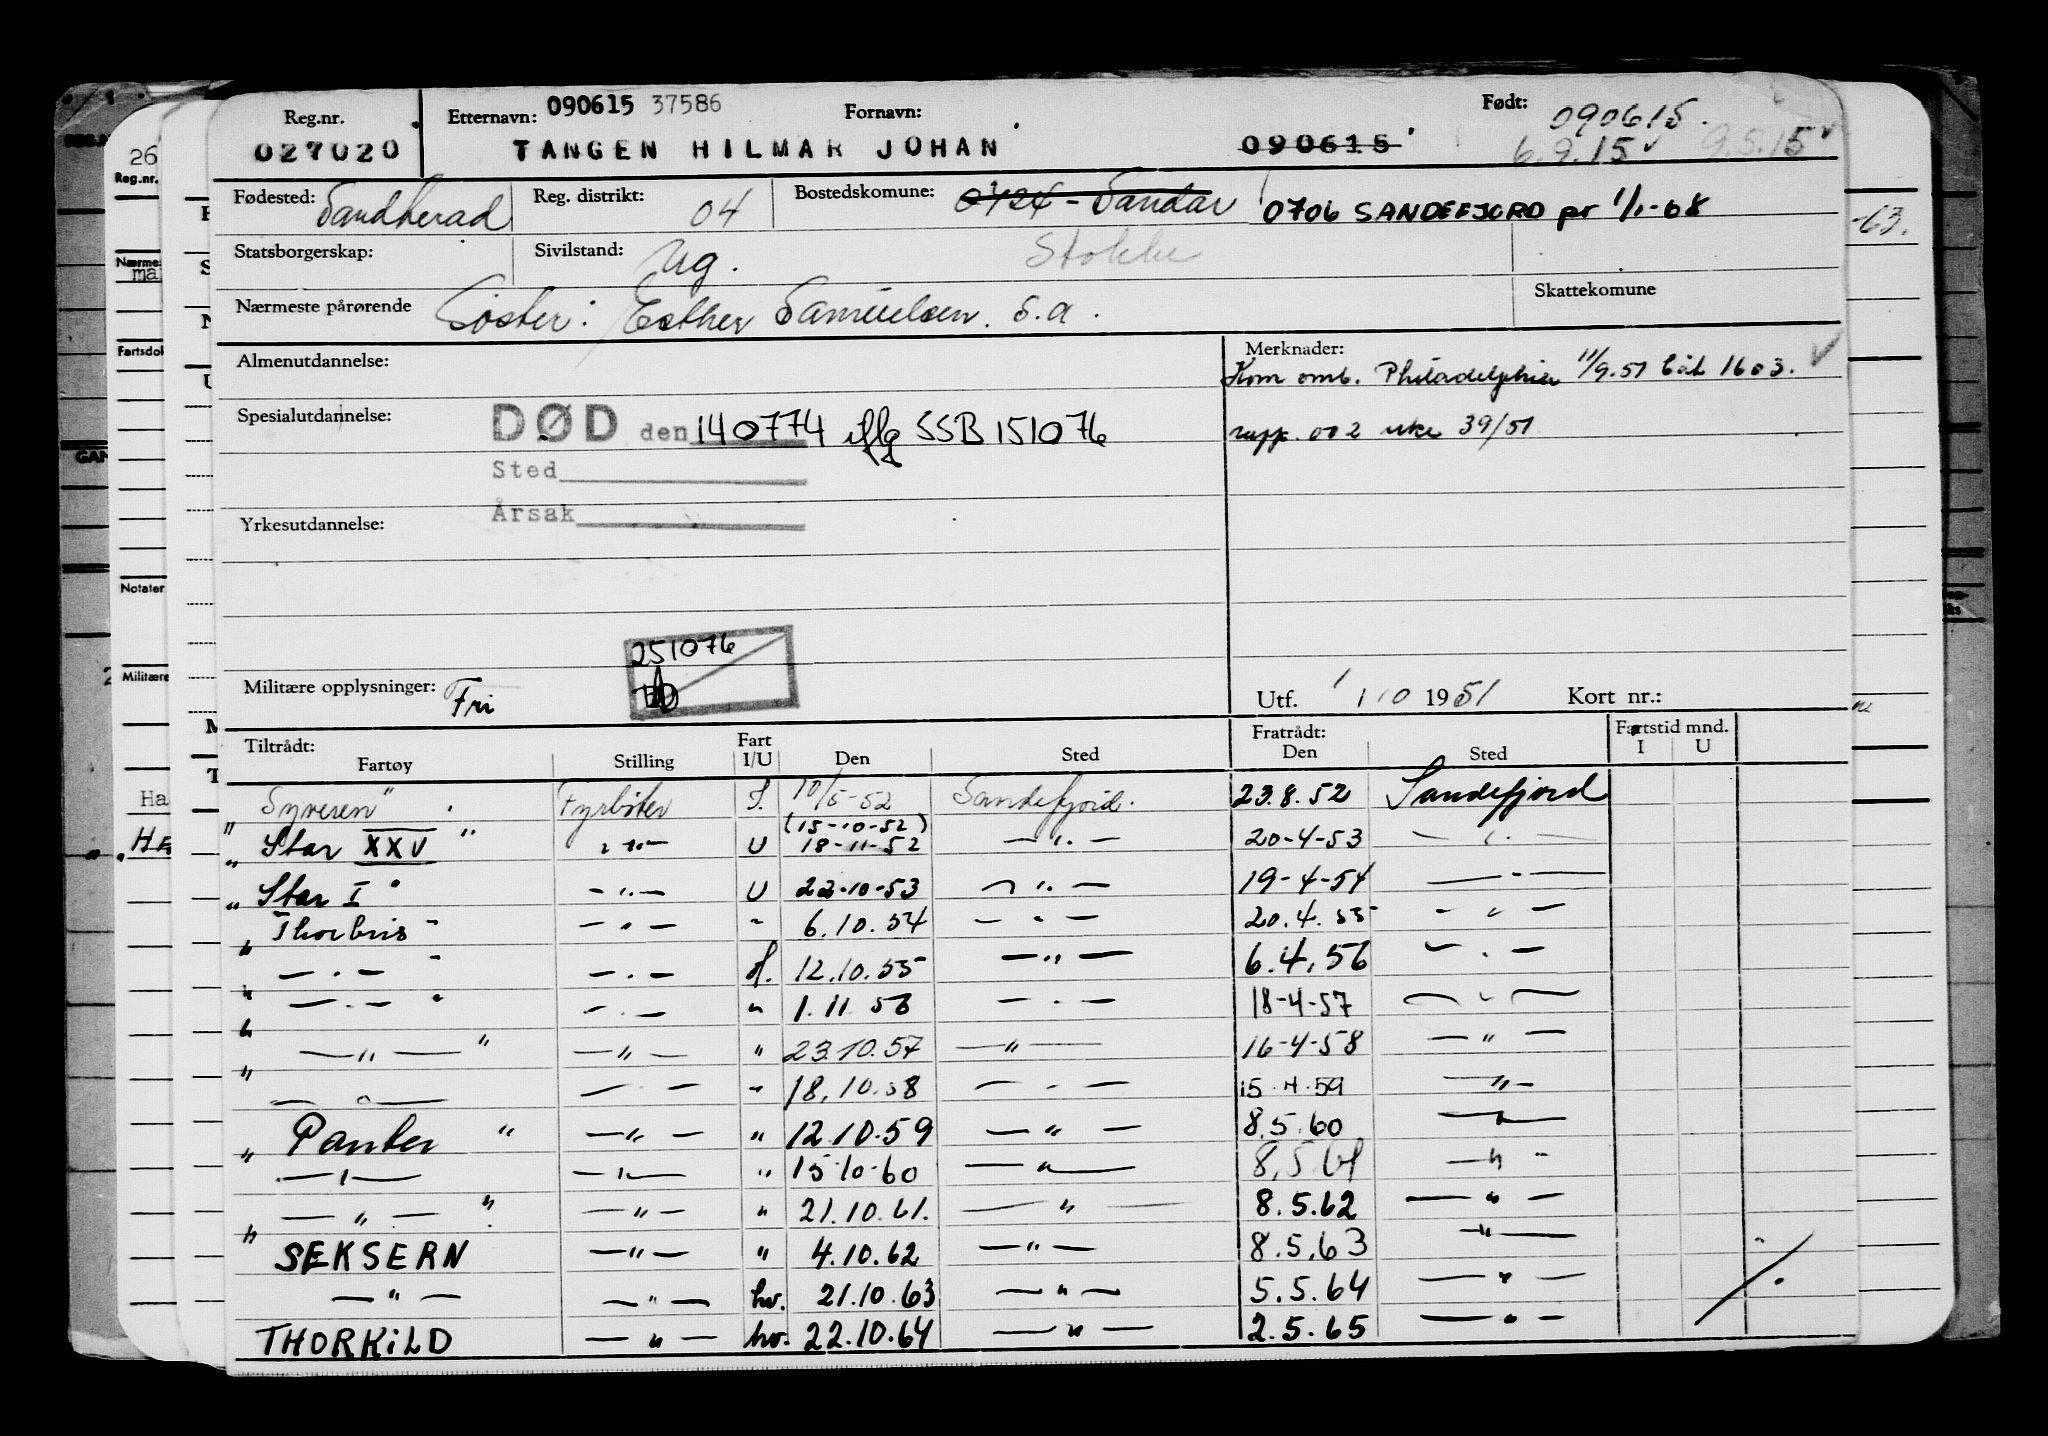 Reg.nr.
027020
Etternavn: 090615 37586 Fornavn: Født: 090615.
TANGEN HILMAR JOHAN 090615 6.9.15 9.5.15
Fødested: Sandherad Reg. distrikt: 04 Bostedskomune: 0724 - Sandar 0706 SANDEFJORD pr 1/1-68
Statsborgerskap: Sivilstand: Ug. Stokke
Nærmeste pårørende Søster: Esther Samuelsen. S.a. Skattekomune
Almenutdannelse: Merknader:
Kom omb. Philadelphia 11/9.51 båt 1603.
Spesialutdannelse: DØD den 140774 iflg SSB 151076
rapp. 002 uke 39/51
Sted
Årsak
Yrkesutdannelse:
251076
Militære opplysninger: Fri Utf. 1 10 1951 Kort nr.:
Tiltrådt: Fratrådt: Fartstid mnd.
Fartøy Stilling Fart I/U Den Sted Den Sted I U
"Syveren" Fyrbøter S. 10/5-52 Sandefjord. 23.8.52 Sandefjord
(15-10-52)
" Star XXV " - " - U 18-11-52 - " - 20-4-53 - " -
" Star I " - " - U 22-10-53 - " - 19-4-54 - " -
" Thorbris " - " - " 6.10.54 - " - 20.4.55 - " -
" - " - " - " - S. 12.10.55 - " - 6.4.56 - " -
" - " - " - " - " 1.11.56 - " - 18-4-57 - " -
" - " - " - " - " 23.10.57 - " - 16-4-58 - " -
" - " - - " - " 18.10.58 - " - 15.4.59 - " -
" Panter " - " - " 12.10.59 - " - 8.5.60 - " -
- " - - " - " 15-10-60 - " - 8.5.61 - " -
" - " - " - " - " 21.10.61. - " - 8.5.62 - " -
SEKSERN - " - " 4.10.62 - " - 8.5.63 - " -
- " - - " - hv. 21.10.63 - " - 5.5.64 - " -
THORKILD - " - hv. 22.10.64 - " - 2.5.65 - " -
26
Reg.nr.
Nærme
ma
Fartsdok
Notater
Militære
Ha
-63.